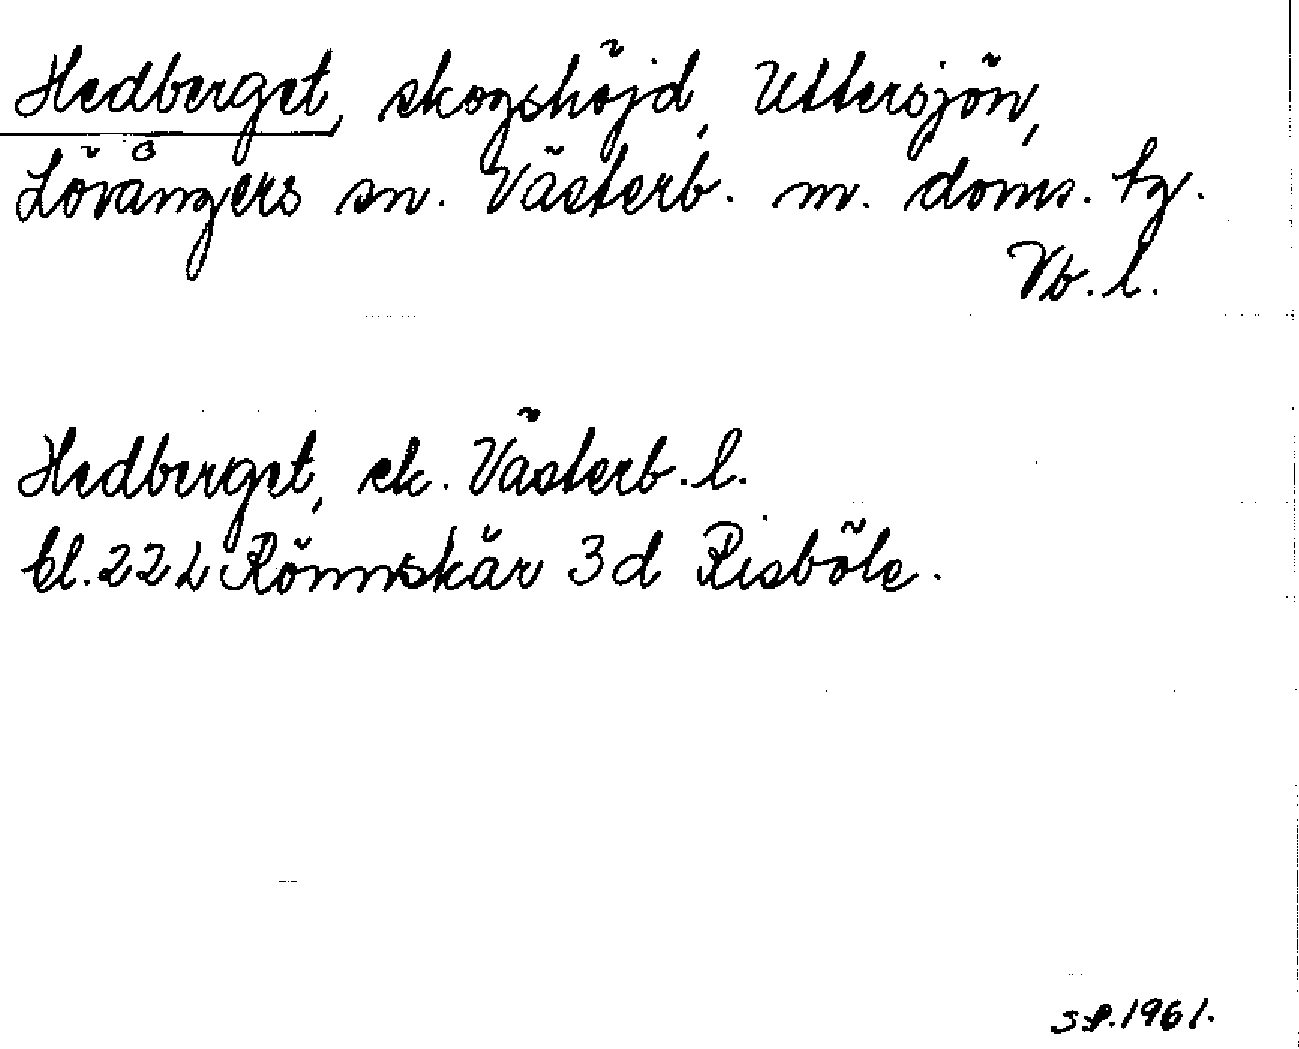 Hedberget, skogshöjd, Uttersjön,
Lövångers sn. Västerb. m. doms. tg.
Vb. l.
Hedberget, ek. Västerb. l.
bl. 22 L Rönnskär 3d Risböle.
S.P. 1961.